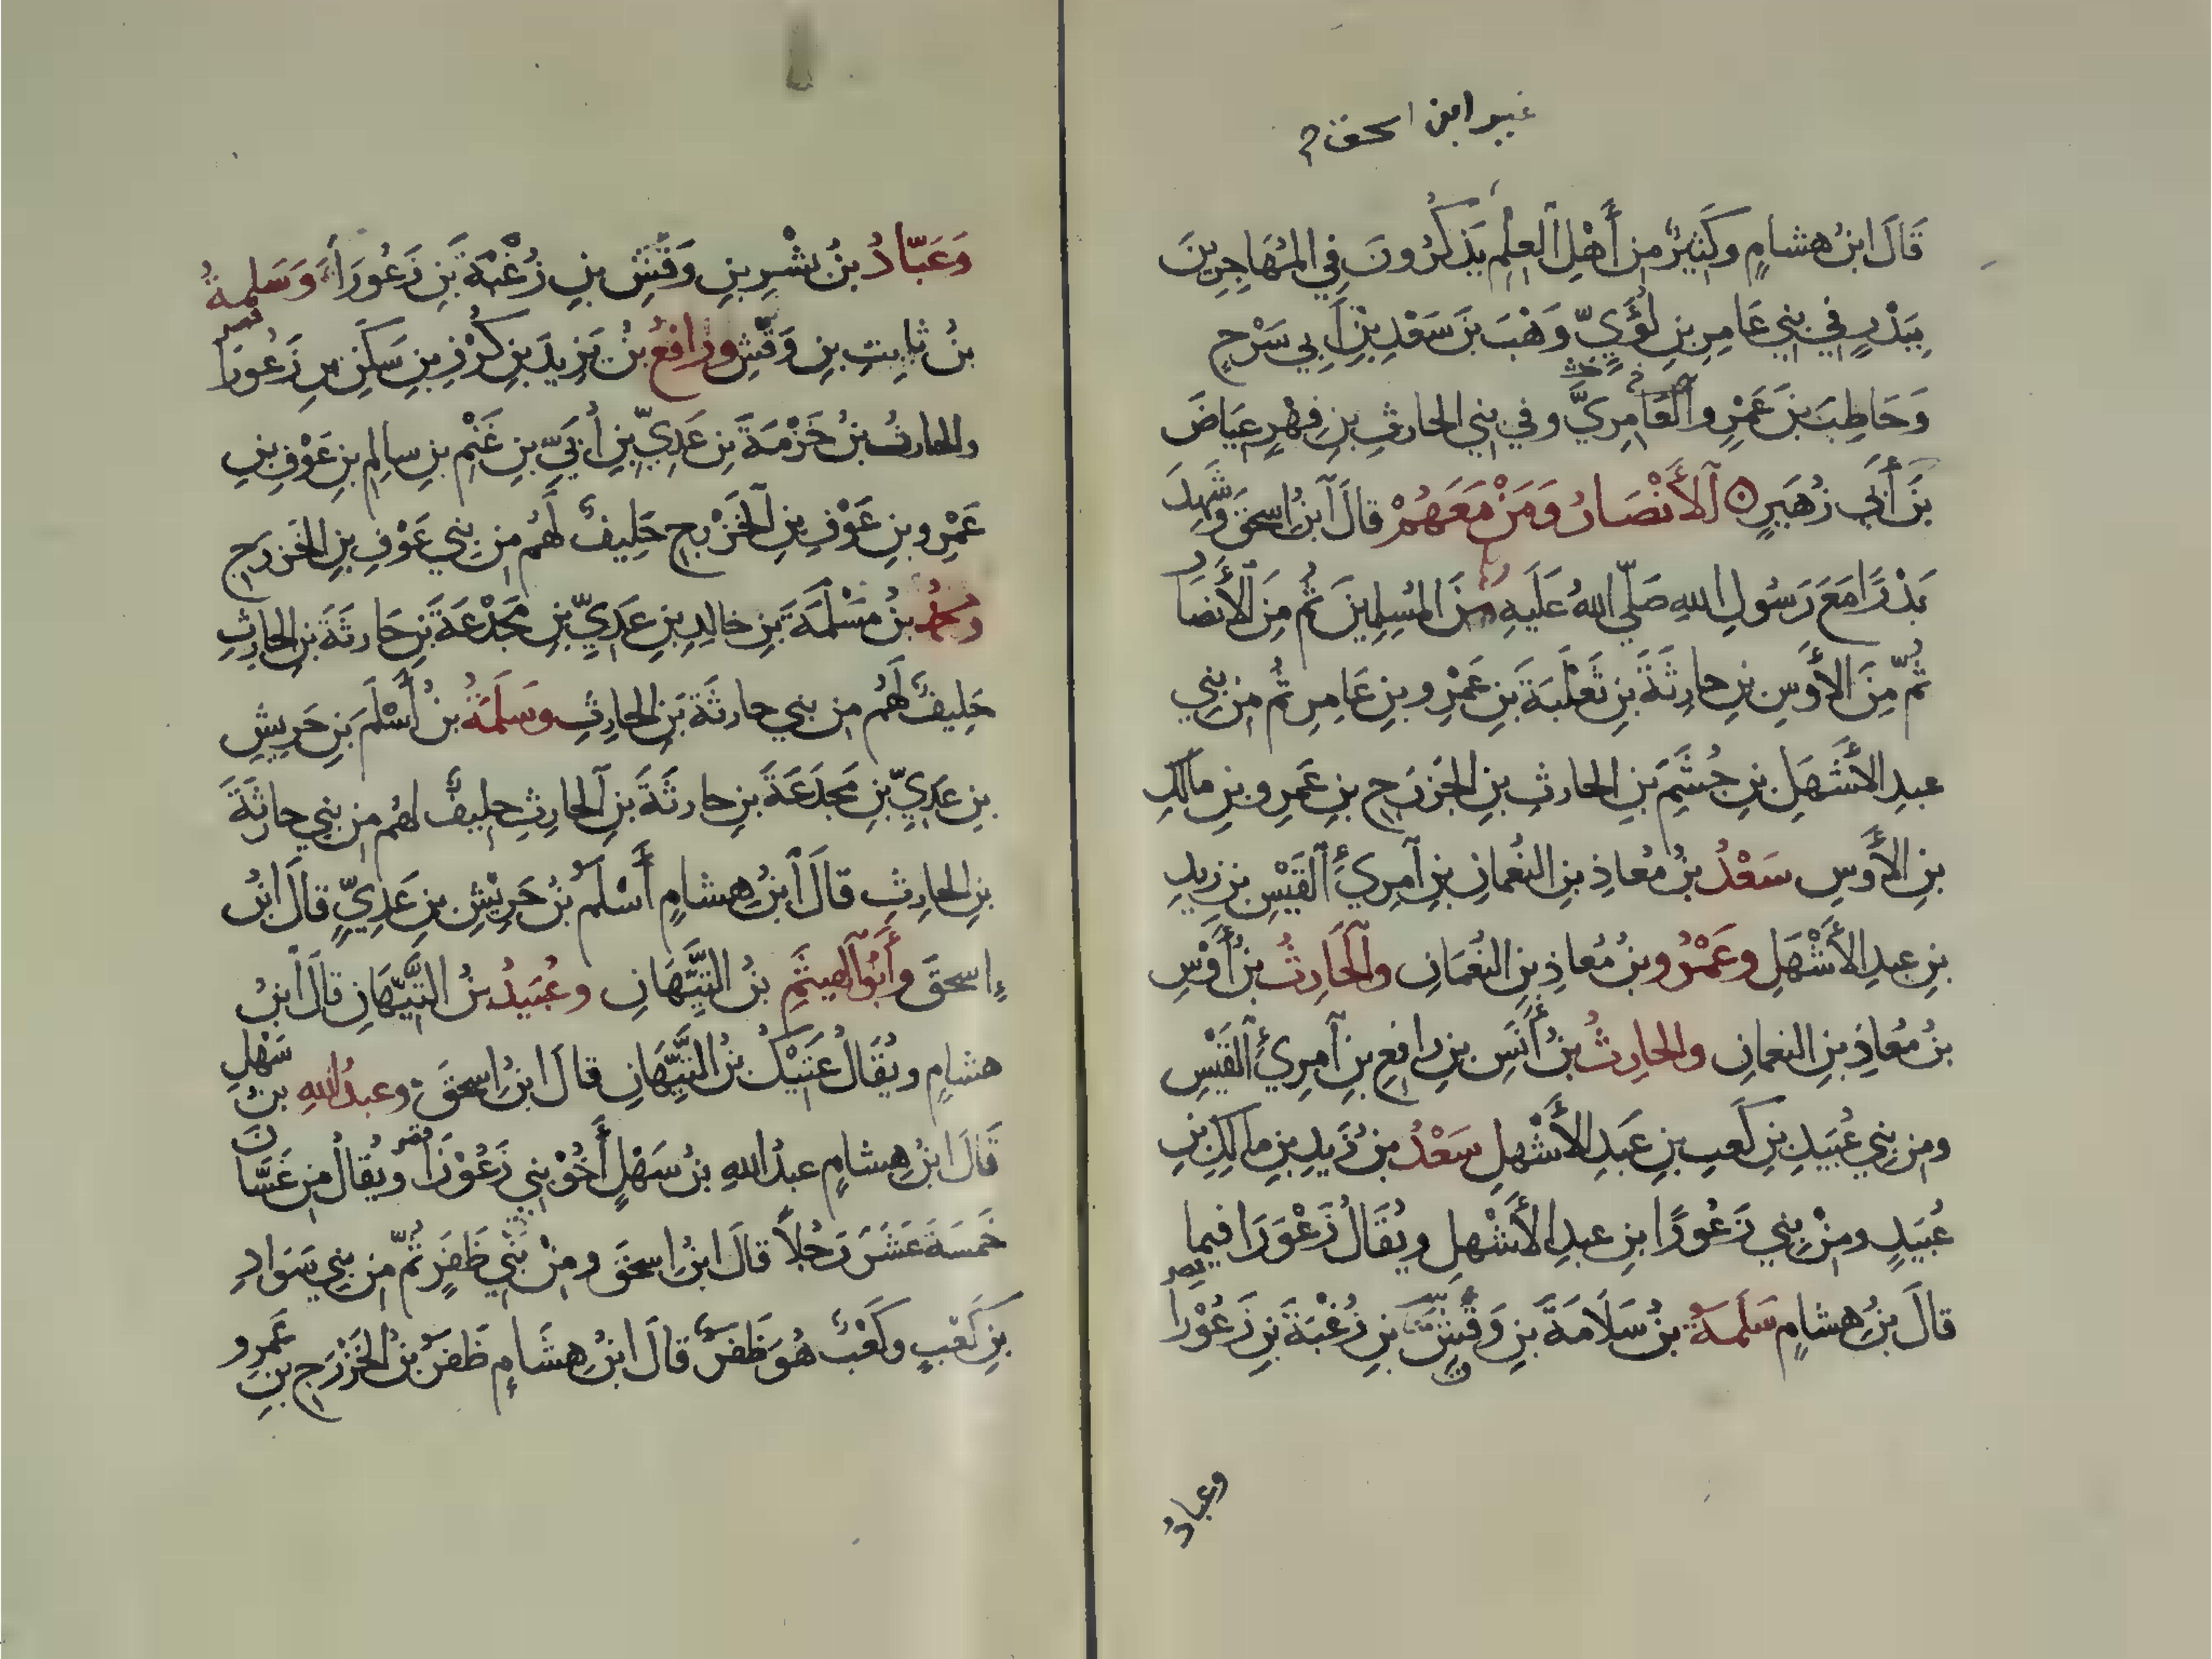 غير ابن اسحق
قَالَ ابنُ هشامٍ وكَثيرٌ من أَهْلِ العِلْمِ يَذكرُونَ في المُهَاجِرِينَ
بِبَدْرٍ في بني عَامرِ بنِ لُؤَيٍّ وَهْبَ بنَ سَعْدِ بْنِ أَبي سَرْحٍ
وَحَاطِبَ بنَ عَمْرٍو العَامِرِيَّ وفي بني الحارثِ بنِ فِهْرٍ عِيَاضَ
بنَ أَبي زُهَيرٍ الأَنْصَارُ وَمَنْ مَعَهُمْ قالَ ابنُ اسحقَ وشَهِدَ
بَدْرًا مَعَ رَسُولِ اللهِ صَلّى اللهُ عَلَيهِ مِنَ المُسلِمينَ ثُم مِنَ الأَنصَارِ
ثُمّ مِنَ الأَوسِ بنِ حارِثَةَ بنِ ثَعلَبَةَ بنِ عَمْرِو بنِ عَامِرٍ ثُم من بني
عبدِ الأَشهَلِ بنِ جُشَمَ بنِ الحارثِ بنِ الخَزرَجِ بنِ عَمرِو بنِ مالكِ
بنِ الأَوسِ سَعْدُ بنُ مُعاذِ بنِ النُعمانِ بنِ امرِئِ القَيْسِ بنِ زيدِ
بنِ عبدِ الأَشْهَلِ وعَمْرُو بنُ مُعاذِ بنِ النُعْمَانِ والحَارِثُ بنُ أَوْسِ
بنُ مُعَاذِ بنِ النعمانِ والحارِثُ بنُ أَنَسِ بنِ رافِعِ بنِ امرِئِ القَيْسِ
ومن بني عُبَيدِ بنِ كَعبِ بنِ عَبدِ الأَشْهلِ سَعْدُ بن زَيدِ بنِ مالكِ بنِ
عُبَيدٍ ومنْ بني زَعُورَا بنِ عبدِ الأَشْهلِ ويُقَالُ زَعْوَرَا فيما
قالَ بنُ هشامٍ سَلَمَةُ بنُ سَلَامَةَ بنِ وَقْشِ بنِ زُغْبَةَ بنِ زَعُوْرَا
وعبادُ
وَعَبّادُ بنُ بِشْرِ بنِ وَقْشِ بنِ زُغْبَةَ بنِ زَعُورَا وَسَلمةُ
بنُ ثابِتِ بنِ وَقْشٍ ورَافعُ بنُ يَزِيدَ بنِ كُرْزِ بنِ سَكَنِ بنِ زَعُورَا
والحارثُ بنُ خَزْمَةَ بنِ عَدِيِّ بنِ أُبَيِّ بنِ غَنْمِ بنِ سالمِ بنِ عَوْفِ بنِ
عَمْرِو بنِ عَوْفِ بنِ الخَزْرجِ حَلِيفٌ لَهُم من بني عَوْفِ بنِ الخَزرَجِ
ومحمدُ بنُ مَسْلَمَةَ بنِ خالدِ بنِ عَدِيِّ بنِ مَجْدَعَةَ بنِ حَارثَةَ بنِ الحارِثِ
حَلِيفٌ لَهُم من بني حارثَةَ بنِ الحارِثِ وسَلَمَةُ بنُ أَسْلَمَ بنِ حَرِيشِ
بنِ عَدِيِّ بنِ مَجدَعَةَ بنِ حارثَةَ بنِ الحارِثِ حليفٌ لهُم من بني حارثَةَ
بنِ الحارِثِ قالَ ابنُ هِشامٍ أَسْلَمُ بنُ حَرِيْشِ بنِ عَدِيٍّ قالَ ابنُ
إسحقَ وأَبُو الهيثَمِ بنُ التَّيِّهَانِ وعُبَيدُ بنُ التَّيِّهَانِ قالَ ابنُ
هشامٍ ويُقَالُ عَتِيْكُ بنُ التَّيِّهَانِ قالَ ابنُ اسحقَ وعبدُ اللهِ بنُ سَهْلٍ
قَالَ ابنُ هِشامٍ عبدُ اللهِ بنُ سَهْلٍ أَخُوْ بني زَعُوْرَا ويُقالُ من غَسَّانَ
خَمسَةَ عَشَرَ رَجُلًا قالَ ابنُ اسحقَ ومنْ بَنِي ظَفَرٍ ثُمّ من بني سَوَادِ
بنِ كَعْبٍ وكَعْبٌ هُوَ ظَفَرٌ قالَ ابنُ هِشَامٍ ظَفَرُ بنُ الخَزْرَجِ بنِ عَمرِو